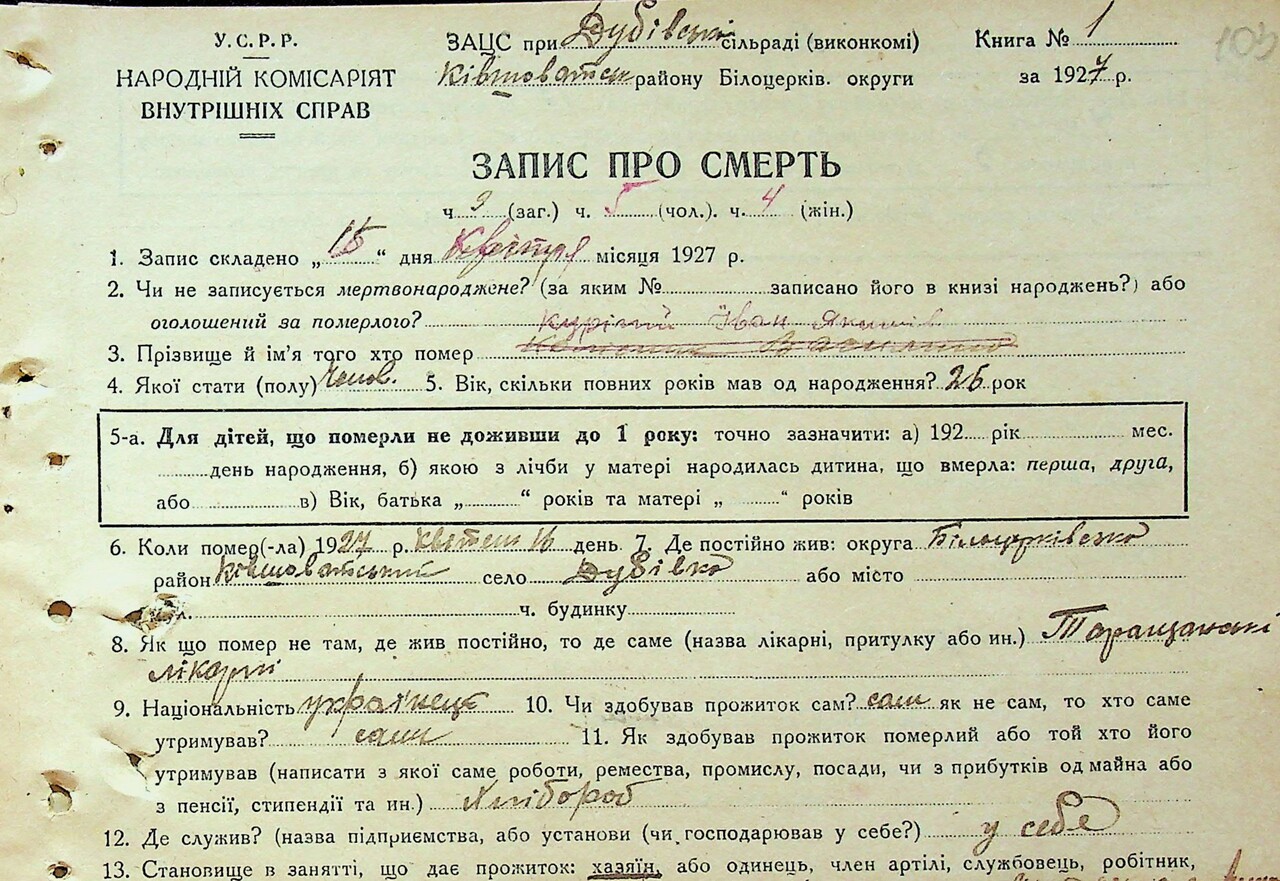 У.С.Р.Р.
НАРОДНІЙ КОМІСАРІЯТ
ВНУТРІШНІХ СПРАВ
ЗАЦС при Дубівські сільраді (виконкомі)
Ківшоватск району Білоцерків. округи
Книга № 1
за 1927 р.
103
ЗАПИС ПРО СМЕРТЬ
ч. 9 (заг.) ч. 5 (чол.). ч. 4 (жін.)
1. Запис складено „ “ дня Квітня місяця 1927 р.
2. Чи не записується мертвонароджене? (за яким № записано його в книзі народжень?) або
оголошений за померлого?
Іван Якимів
3. Прізвище й ім'я того хто помер
4. Якої стати (полу) Чолов. 5. Вік, скільки повних років мав од народження? 26 рок
5-а. Для дітей, що померли не доживши до 1 року: точно зазначити: а) 192 рік мес.
день народження, б) якою з лічби у матері народилась дитина, що вмерла: перша, друга,
або в) Вік, батька „ “ років та матері „ “ років
6. Коли помер(-ла) 1927 р. квітень 16 день 7. Де постійно жив: округа Білоцерківська
район Ківшоватський село Дубівка або місто
вул. ч. будинку
8. Як що помер не там, де жив постійно, то де саме (назва лікарні, притулку або ин.) Таращанські
лікарні
9. Національність українець 10. Чи здобував прожиток сам? сам як не сам, то хто саме
утримував? сам 11. Як здобував прожиток померлий або той хто його
утримував (написати з якої саме роботи, ремества, промислу, посади, чи з прибутків од майна або
з пенсії, стипендії та ин.) Хлібороб
12. Де служив? (назва підприємства, або установи (чи господарював у себе?) у себе
13. Становище в занятті, що дає прожиток: хазяїн, або одинець, член артілі, службовець, робітник,